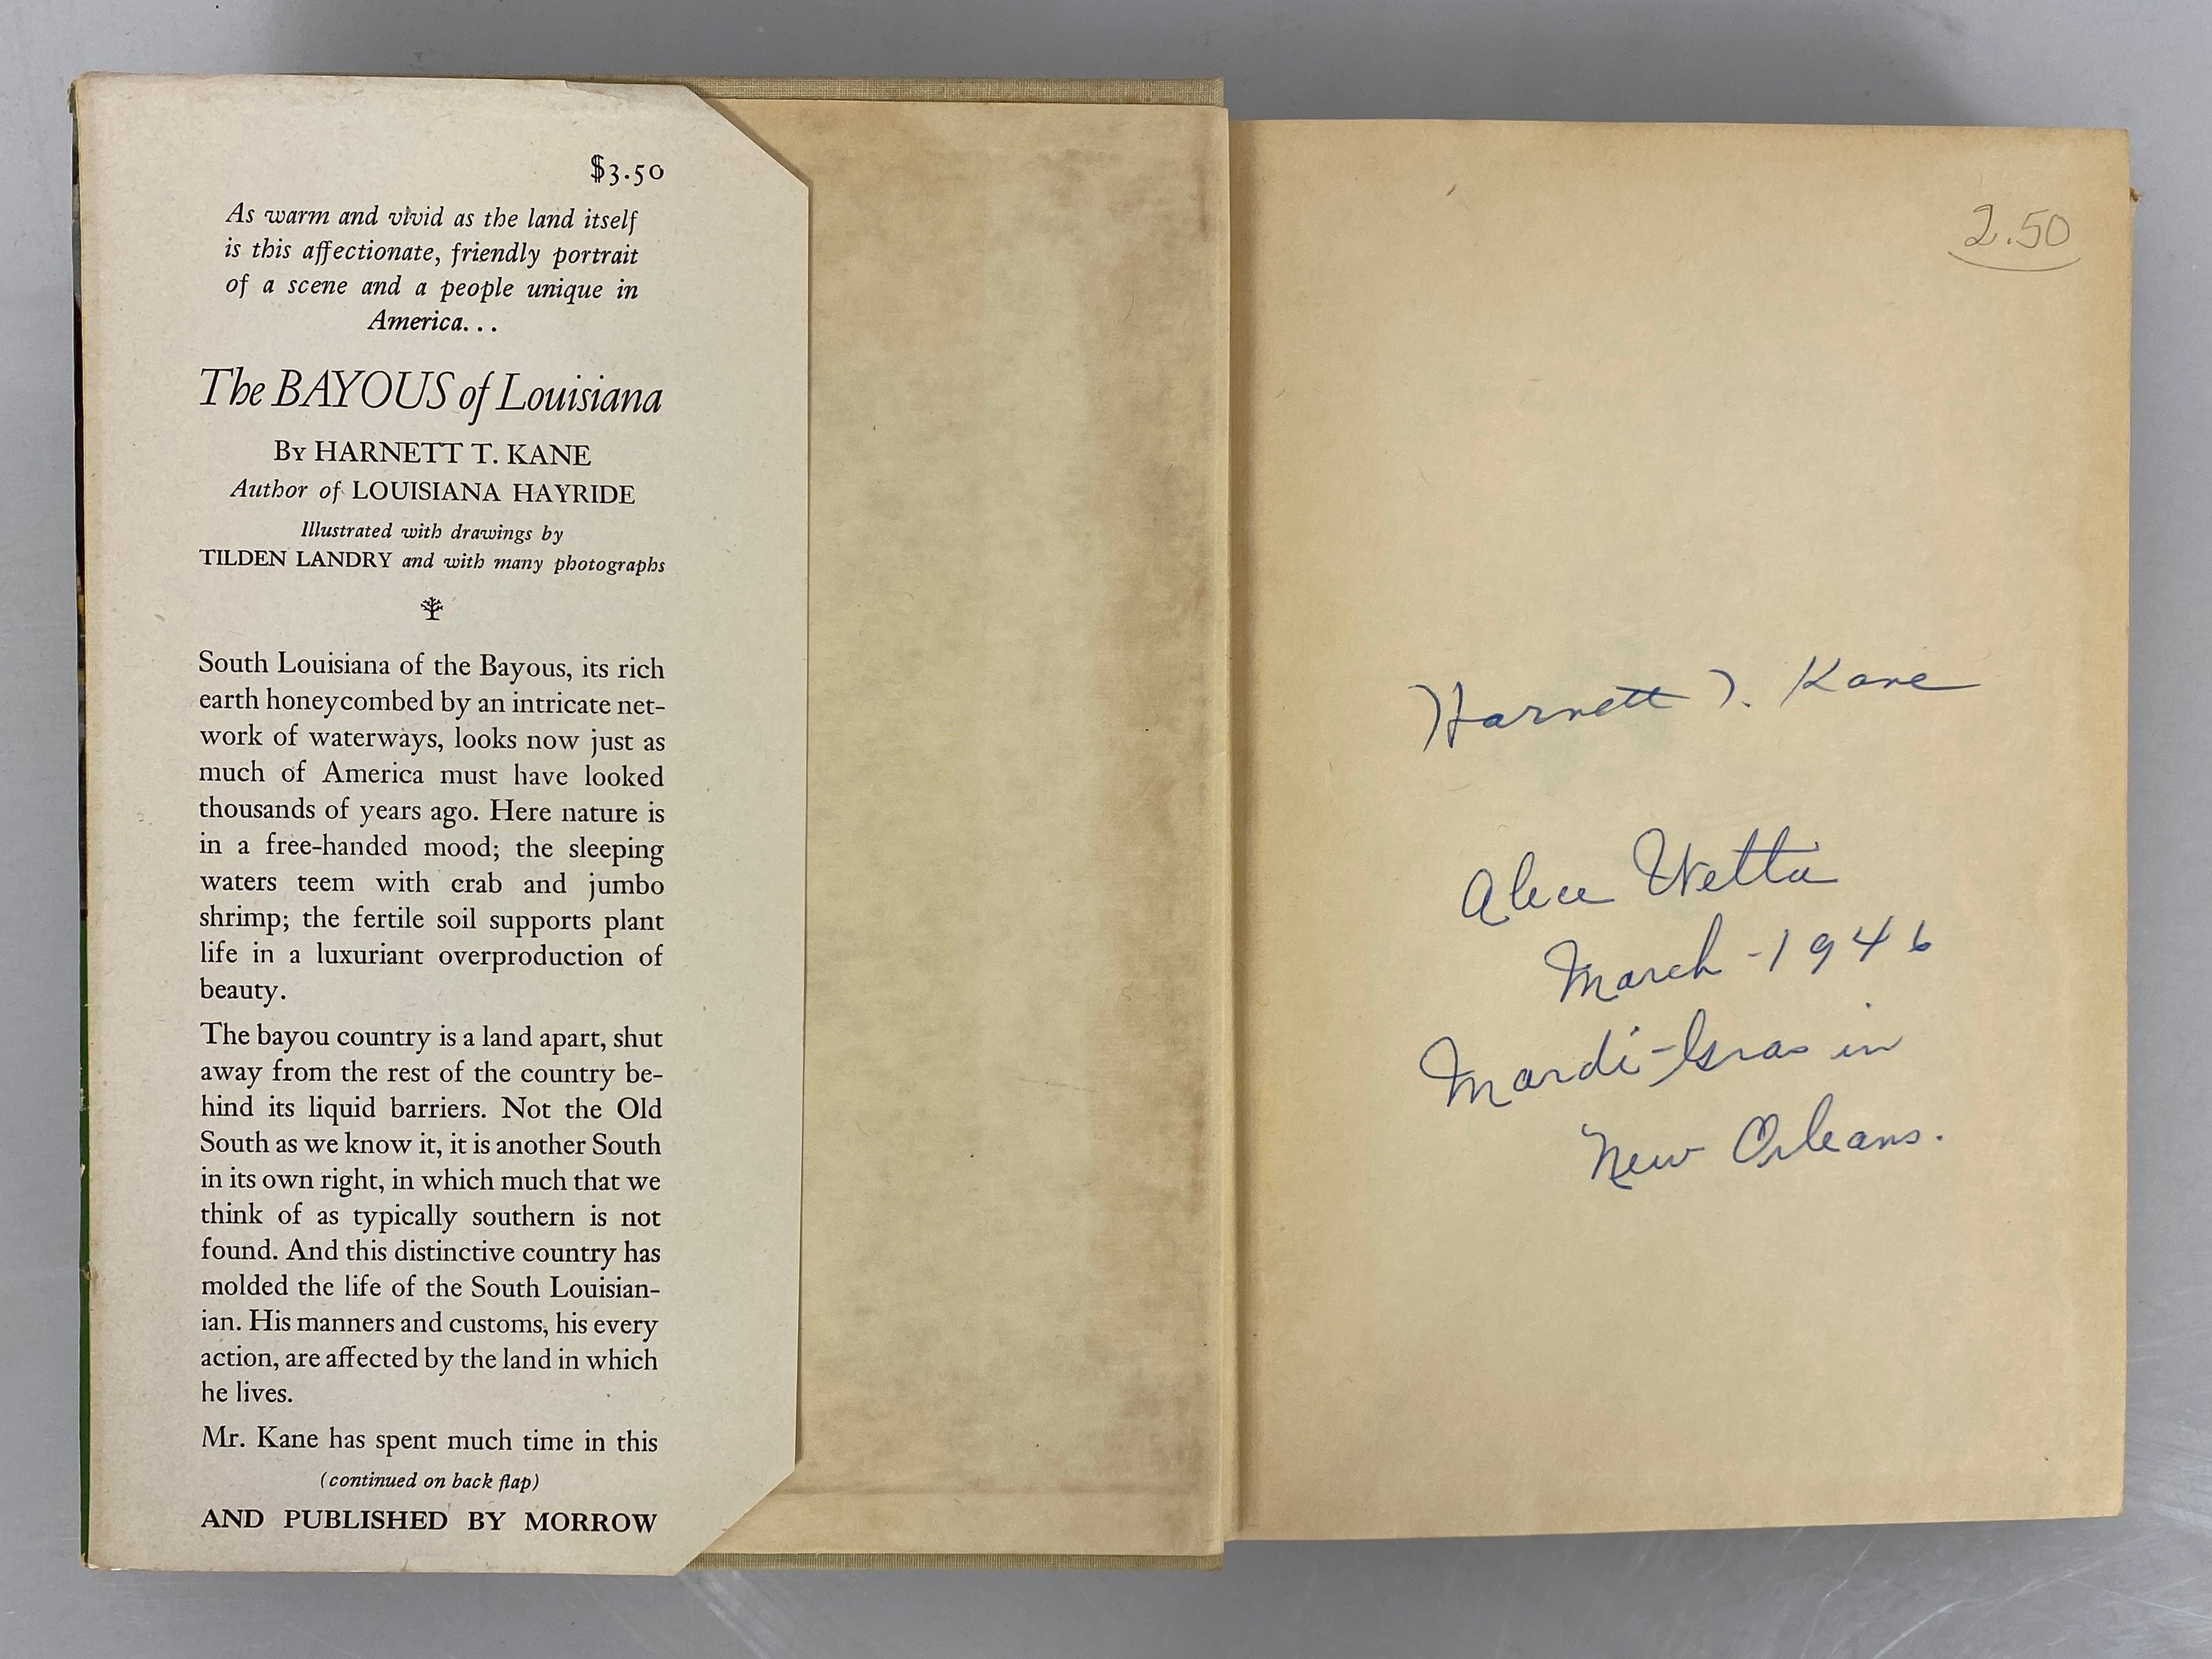 $3.50
As warm and vivid as the land itself
is this affectionate, friendly portrait
of a scene and a people unique in
America...
The BAYOUS of Louisiana
By HARNETT T. KANE
Author of LOUISIANA HAYRIDE
Illustrated with drawings by
TILDEN LANDRY and with many photographs
South Louisiana of the Bayous, its rich
earth honeycombed by an intricate net-
work of waterways, looks now just as
much of America must have looked
thousands of years ago. Here nature is
in a free-handed mood; the sleeping
waters teem with crab and jumbo
shrimp; the fertile soil supports plant
life in a luxuriant overproduction of
beauty.
The bayou country is a land apart, shut
away from the rest of the country be-
hind its liquid barriers. Not the Old
South as we know it, it is another South
in its own right, in which much that we
think of as typically southern is not
found. And this distinctive country has
molded the life of the South Louisian-
ian. His manners and customs, his every
action, are affected by the land in which
he lives.
Mr. Kane has spent much time in this
(continued on back flap)
AND PUBLISHED BY MORROW
2.50
Harnett T. Kane
Alice Wetta
March - 1946
Mardi-Gras in
New Orleans.